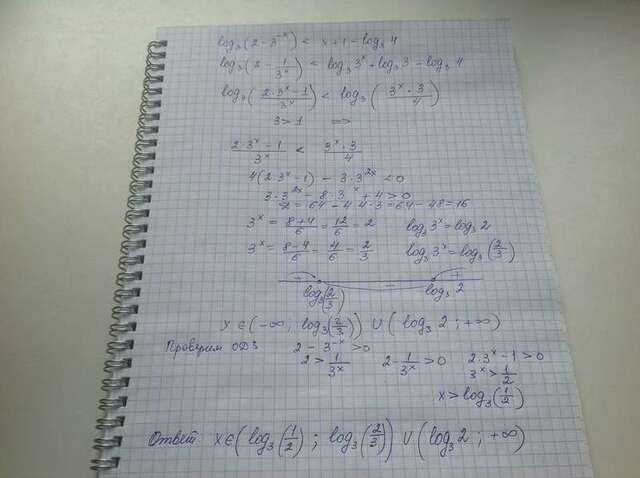 log₃(2 - 3⁻ˣ) < x + 1 - log₃ 4
log₃(2 - 1/3ˣ) < log₃ 3ˣ + log₃ 3 - log₃ 4
log₃((2·3ˣ - 1)/3ˣ) < log₃((3ˣ·3)/4)
3 > 1 =>
(2·3ˣ - 1)/3ˣ < (3ˣ·3)/4
4(2·3ˣ - 1) - 3·3²ˣ < 0
3·3²ˣ - 8·3ˣ + 4 > 0
D = 64 - 4·4·3 = 64 - 48 = 16
3ˣ = (8+4)/6 = 12/6 = 2 log₃ 3ˣ = log₃ 2
3ˣ = (8-4)/6 = 4/6 = 2/3 log₃ 3ˣ = log₃(2/3)
+ - +
log₃(2/3) log₃ 2
x ∈ (-∞ ; log₃(2/3)) ∪ (log₃ 2 ; +∞)
Проверим ОДЗ 2 - 3⁻ˣ > 0
2 > 1/3ˣ 2 - 1/3ˣ > 0 2·3ˣ - 1 > 0
3ˣ > 1/2
x > log₃(1/2)
Ответ x ∈ (log₃(1/2) ; log₃(2/3)) ∪ (log₃ 2 ; +∞)